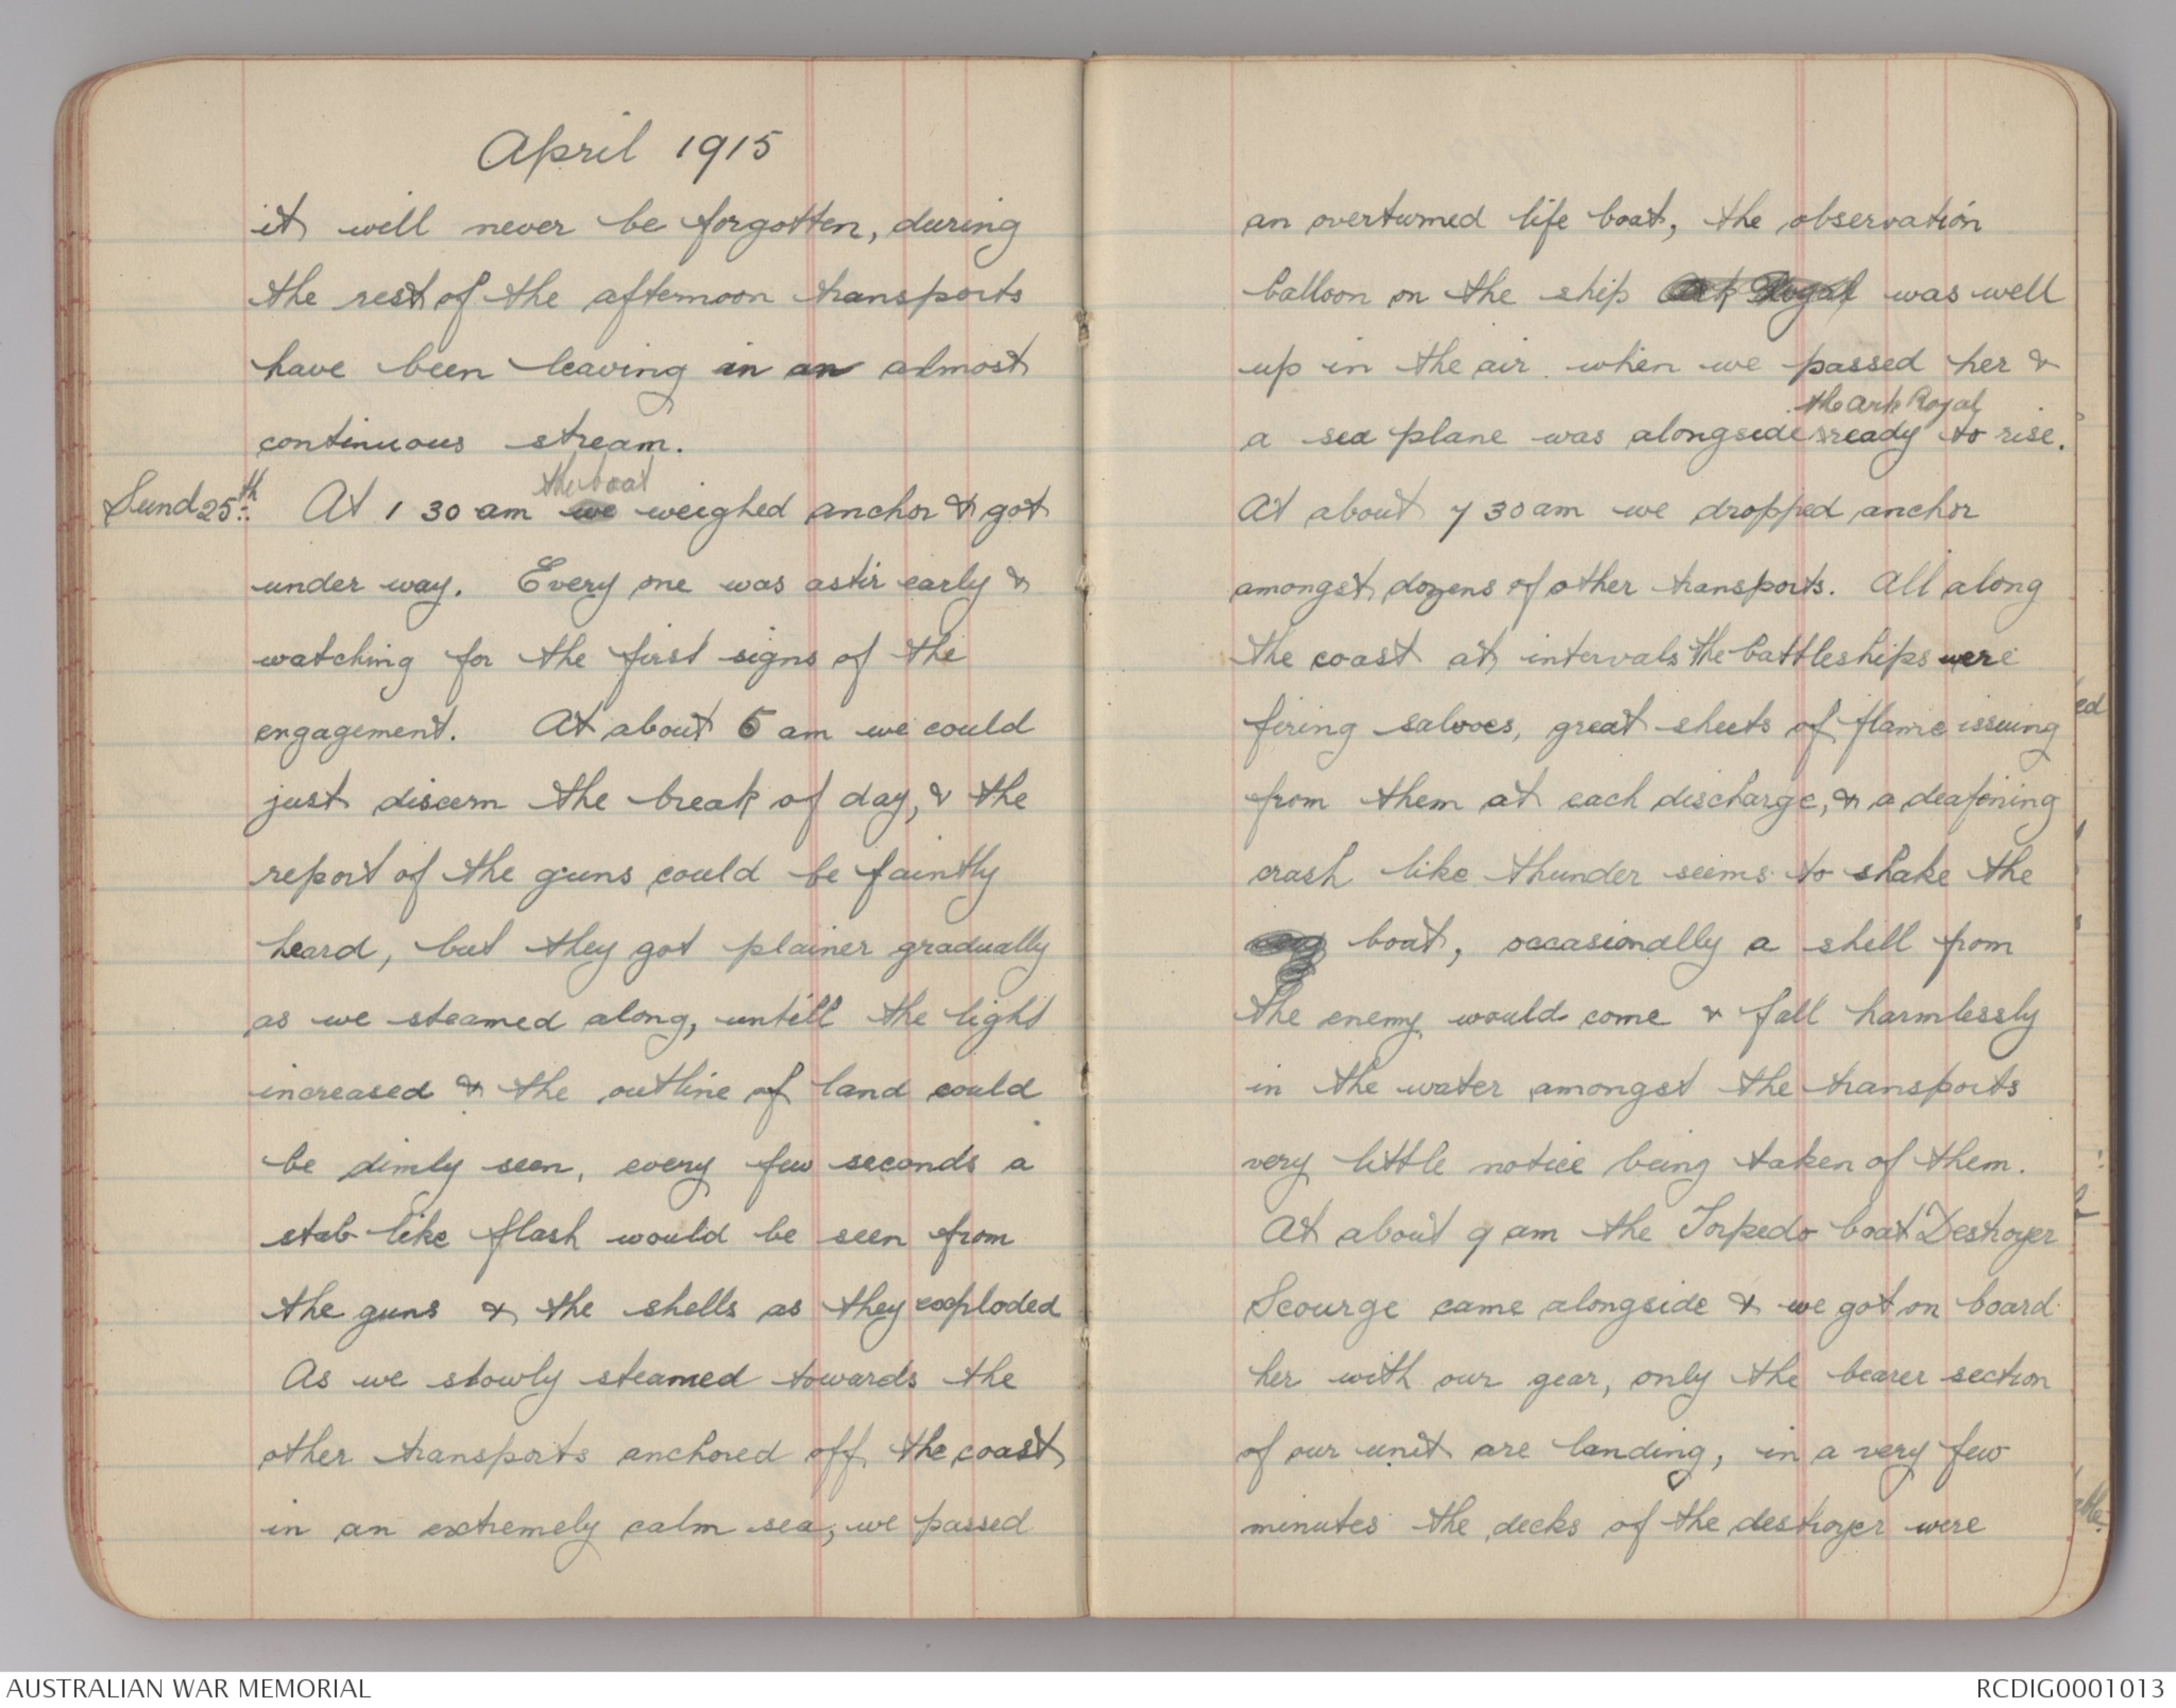 April 1915
it will never be forgotten, during
the rest of the afternoon transports
have been leaving in an almost
continuous stream.
the boat
Sund 25th. At 1 30 am we weighed anchor & got
under way. Every one was astir early &
watching for the first signs of the
engagement. At about 5 am we could
just discern the break of day, & the
report of the guns could be faintly
heard, but they got plainer gradually
as we steamed along, untill the light
increased & the outline of land could
be dimly seen, every few seconds a
stab like flash would be seen from
the guns & the shells as they exploded
As we slowly steamed towards the
other transports anchored off the coast,
in an extremely calm sea, we passed
an overturned life boat, the observation
balloon on the ship Ark Royal was well
up in the air when we passed her &
the Ark Royal
a sea plane was alongside ready to rise.
At about 7 30 am we dropped anchor
amongst dozens of other transports. All along
the coast at intervals the battleships were
firing salvoes, great sheets of flame issuing
from them at each discharge, & a deafening
crash like thunder seems to shake the
boat, occasionally a shell from
the enemy would come & fall harmlessly
in the water amongst the transports
very little notice being taken of them.
At about 9 am the Torpedo boat Destroyer
Scourge came alongside & we got on board
her with our gear, only the bearer section
of our unit are landing, in a very few
minutes the decks of the destroyer were
AUSTRALIAN WAR MEMORIAL
RCDIG0001013